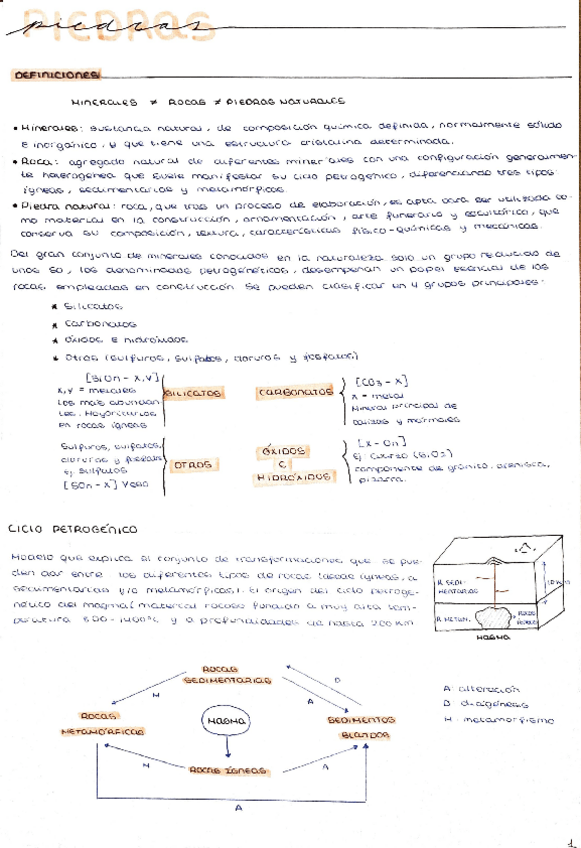 PIEDRAS
piedras
DEFINICIONES
MINERALES ≠ ROCAS ≠ PIEDRAS NATURALES
• Minerales: sustancia natural, de composición química definida, normalmente sólido
e inorgánico, y que tiene una estructura cristalina determinada.
• Roca: agregado natural de diferentes minerales con una configuración generalmen-
te heterogénea que suele manifestar su ciclo petrogénico, diferenciando tres tipos:
ígneas, sedimentarias y metamórficas.
• Piedra natural: roca, que tras un proceso de elaboración, es apta para ser utilizada co-
mo material en la construcción, ornamentación, arte funerario y escultórico, que
conserva su composición, textura, características físico-químicas y mecánicas.
Del gran conjunto de minerales conocidos en la naturaleza solo un grupo reducido de
unos 50, los denominados petrogenéticos, desempeñan un papel esencial de las
rocas empleadas en construcción. Se pueden clasificar en 4 grupos principales:
* Silicatos
* Carbonatos
* Óxidos e hidróxidos
* Otros (sulfuros, sulfatos, cloruros y fosfatos)
[SiOn - X,Y]
X,Y = metales
Los más abundan
tes. Mayoritarios
en rocas ígneas
SILICATOS
CARBONATOS
[CO3 - X]
X = metal
Mineral principal de
calizas y mármoles
Sulfuros, sulfatos,
cloruros y fosfatos
Ej. sulfatos
[SOn - X] Yeso
OTROS
ÓXIDOS
E
HIDRÓXIDOS
[X - On]
Ej: cuarzo (SiO2)
componente de granito, arenisca,
pizarra.
CICLO PETROGÉNICO
Modelo que explica el conjunto de transformaciones que se pue-
den dar entre los diferentes tipos de rocas (rocas ígneas, a
sedimentarias y/o metamórficas). El origen del ciclo petrogé-
nico es del magma (material rocoso fundido a muy alta tem-
peratura 800-1400°C y a profundidades de hasta 200 km
R. SEDI-
MENTARIAS
R. METAM.
MAGMA
ROCAS
SEDIMENTARIAS
M
D
A
ROCAS
METAMÓRFICAS
MAGMA
SEDIMENTOS
BLANDOS
M
ROCAS ÍGNEAS
A
A
A: alteración
D: diagénesis
M: metamorfismo
1